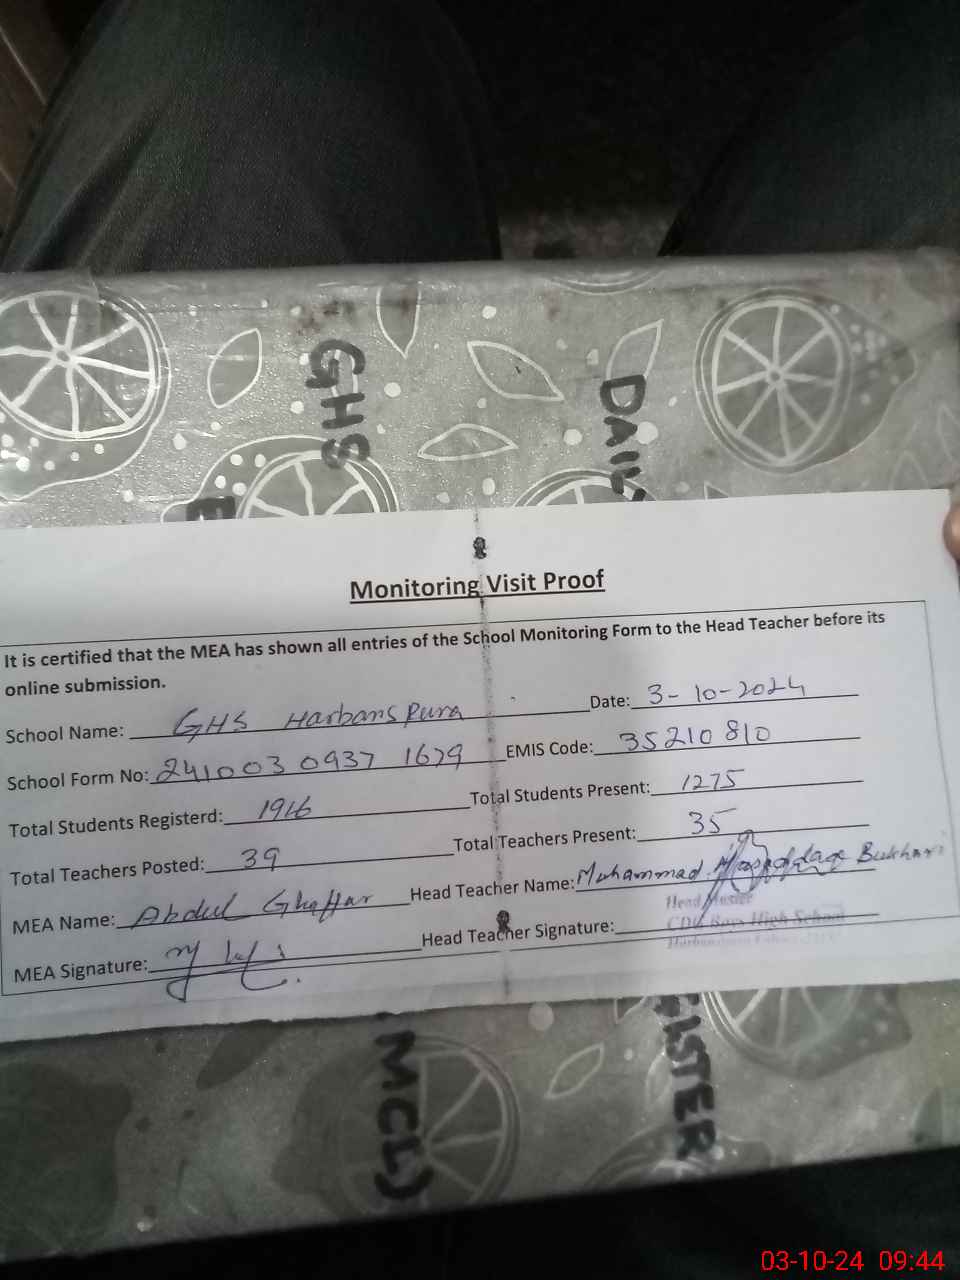 GHS
DAIL
E
Monitoring Visit Proof
It is certified that the MEA has shown all entries of the School Monitoring Form to the Head Teacher before its
online submission.
School Name: GHS Harbanspura Date: 3-10-2024
School Form No: 241003 0937 1679 EMIS Code: 35210810
Total Students Registerd: 1916 Total Students Present: 1275
Total Teachers Posted: 39 Total Teachers Present: 35
MEA Name: Abdul Ghaffar Head Teacher Name: Muhammad Bukhari
MEA Signature: Head Teacher Signature:
Head Master
CDG Boys High School
MCL)
ISTER
03-10-24 09:44